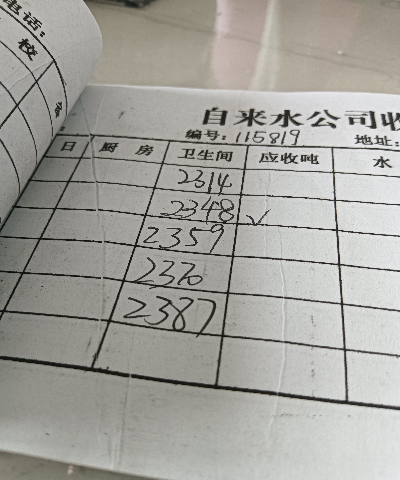 电话:
校
自来水公司收
编号: 115819 地址:
日 厨房 卫生间 应收吨 水
2314
2348 √
2359
2370
2387